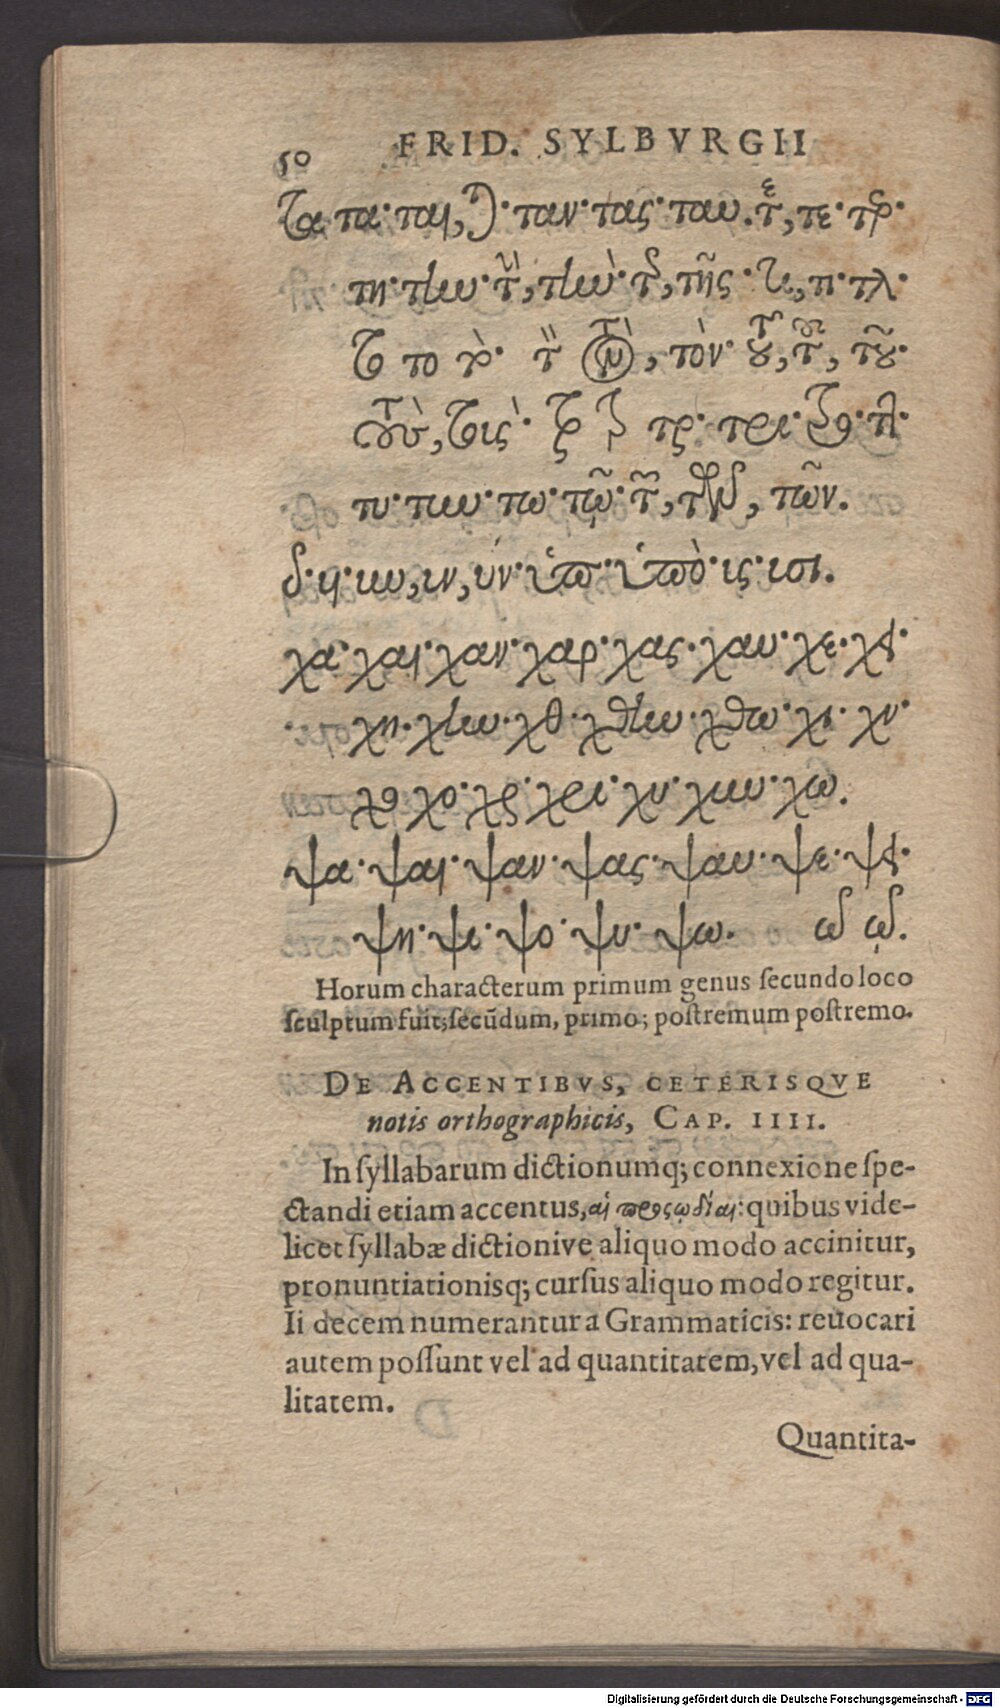 50 FRID. SYLBVRGII
τα τα· ται, ταν· τας· ταυ. τε·
τη· την· τῆς· τι, τλ·
το τὸν· τοῦ·
τις· τρ· τρι·
τυ· τω· τῶν.
υι· υν, ὑπο· ὑπὸ· υς· υσι.
χα· χαι· χαν· χαρ· χας· χαυ· χε· χει·
χη· χην· χθ· χθην· χθω· χι· χν·
χο· χρ· χρι· χυ· χω.
ψα· ψαι· ψαν· ψας· ψαυ· ψε· ψει·
ψη· ψι· ψο· ψυ· ψω.
Horum characterum primum genus ſecundo loco
ſculptum fuit; ſecūdum, primo; poſtremum poſtremo.
DE ACCENTIBVS, CETERISQVE
notis orthographicis, CAP. IIII.
In ſyllabarum dictionumq; connexione ſpe-
ctandi etiam accentus, αἱ προσῳδίαι: quibus vide-
licet ſyllabæ dictionive aliquo modo accinitur,
pronuntiationisq; curſus aliquo modo regitur.
Ii decem numerantur a Grammaticis: reuocari
autem poſſunt vel ad quantitatem, vel ad qua-
litatem.
Quantita-
Digitalisierung gefördert durch die Deutsche Forschungsgemeinschaft - DFG